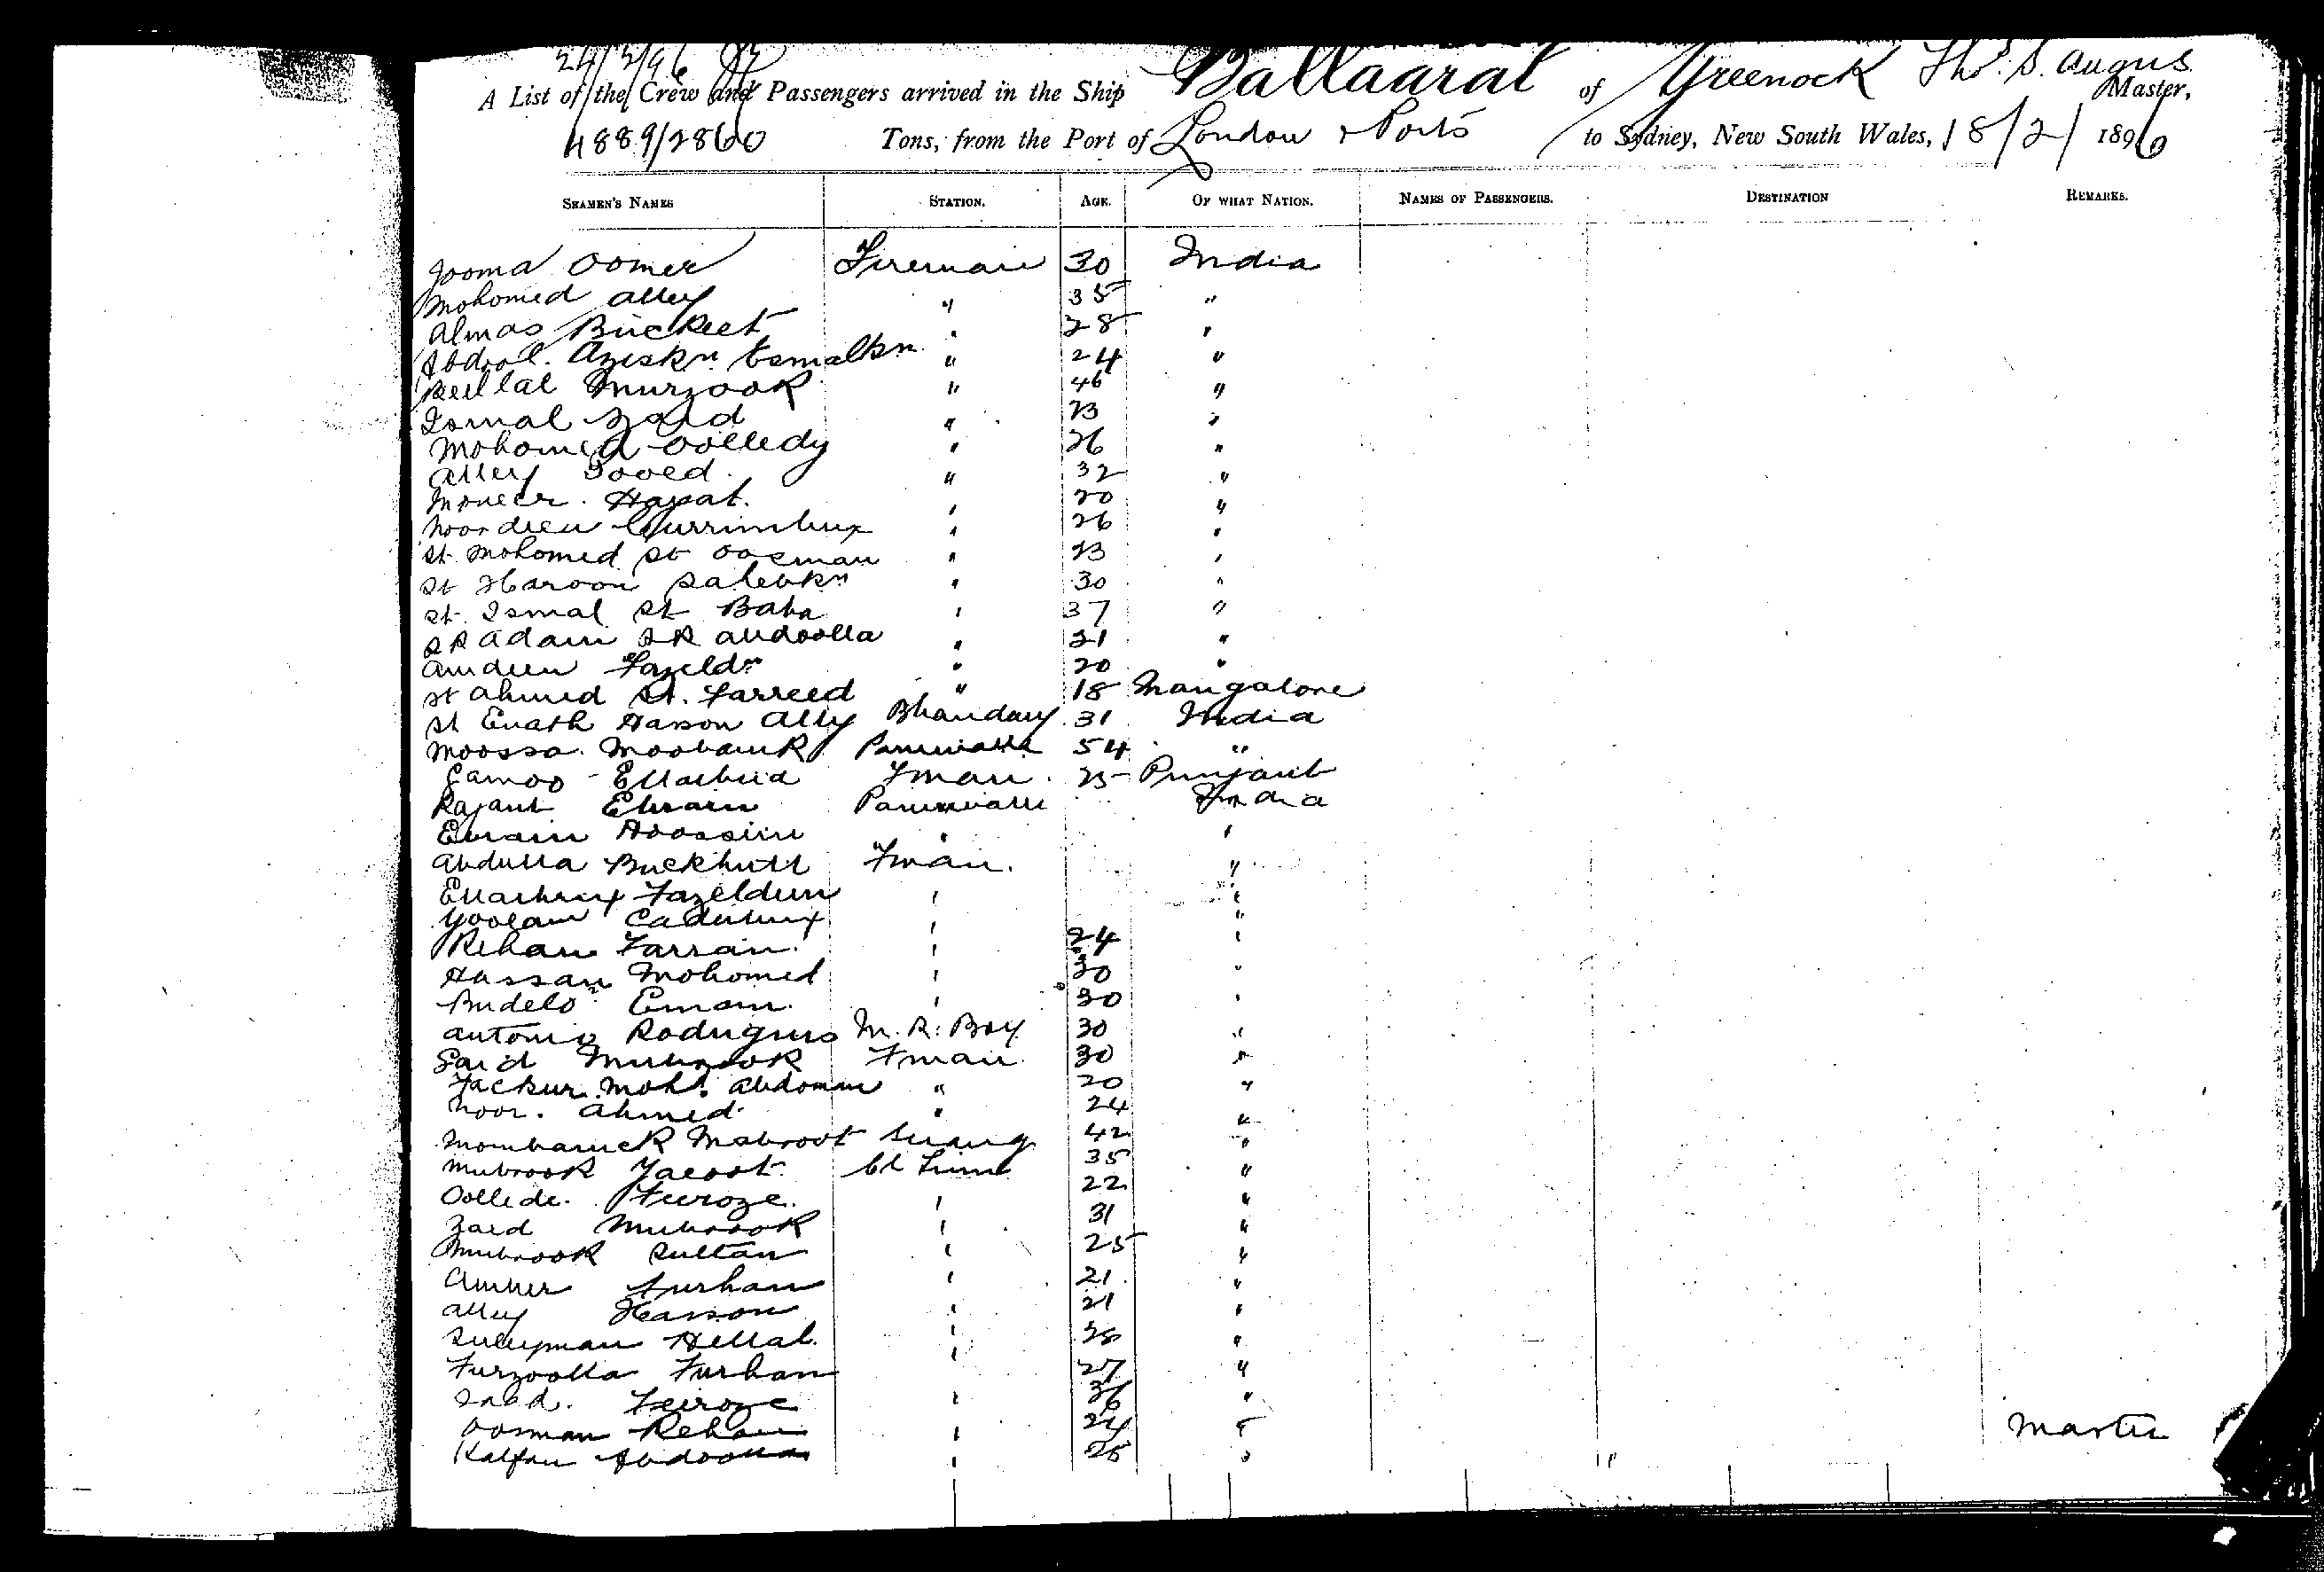 24/2/96
A List of the Crew and Passengers arrived in the Ship Ballaarat of Greenock Thos. S. Angus Master,
4889/2860 Tons, from the Port of London & Ports to Sydney, New South Wales, 18/2/1896
SEAMEN'S NAMES STATION. AGE. OF WHAT NATION. NAMES OF PASSENGERS. DESTINATION REMARKS.
Jooma Oomer Fireman 30 India
Mohomed Alley " 35 "
Almas Buckeet " 28 "
Abdool Aziskn Esmalkn " 24 "
Beellal Murzook " 46 "
Ismal Zaid " 23 "
Mohomed Oolledy " 26 "
Alley " 32 "
Moneer Hayat. " 20 "
Noordeen Currimbux " 26 "
St. Mohomed St Oosman " 23 "
St Haroon Sahebkn " 30 "
St. Ismal St Baba " 37 "
SK Adam SK Abdoolla " 21 "
Amdeen Fazeldn " 20 "
St Ahmed St. Farreed " 18 Mangalore
St Enath Hasson Ally Bhandary 31 India
Moossa Moobaruk Paniwalla 54 "
Eamoo Ellahbia Fman 25 Punjaub
Rajaub Ebram Paniwalla India
Ebram Hoossein " "
Abdulla Buckhutt Fman. "
Ellahbux Fazeldeen " "
Goolam Caderbux " "
Rehan Farran " 24 "
Hassan Mohomed " 30 "
Budelo Emam. " 30 "
Antonio Rodrigues M. R. Boy 30 "
Said Mubrook Fman 30 "
Fackur Moh. " 20 "
Noor. Ahmed " 24 "
Mombaruck Mabroot Serang 42 "
Mubrook Yacoot 35 "
Oollede. Feeroze. " 22 "
Zaed Mubrook " 31 "
Mubrook Sultan " 25 "
Amber Furhan " 21 "
Alley Hasson " 21 "
Suleyman Hellal. " 28 "
Furzoolla Furhan " 27 "
Saad. Feiroze " 36 "
Oosman Rehan " 24 " Master
Kalfan Abdoolla " 25 "